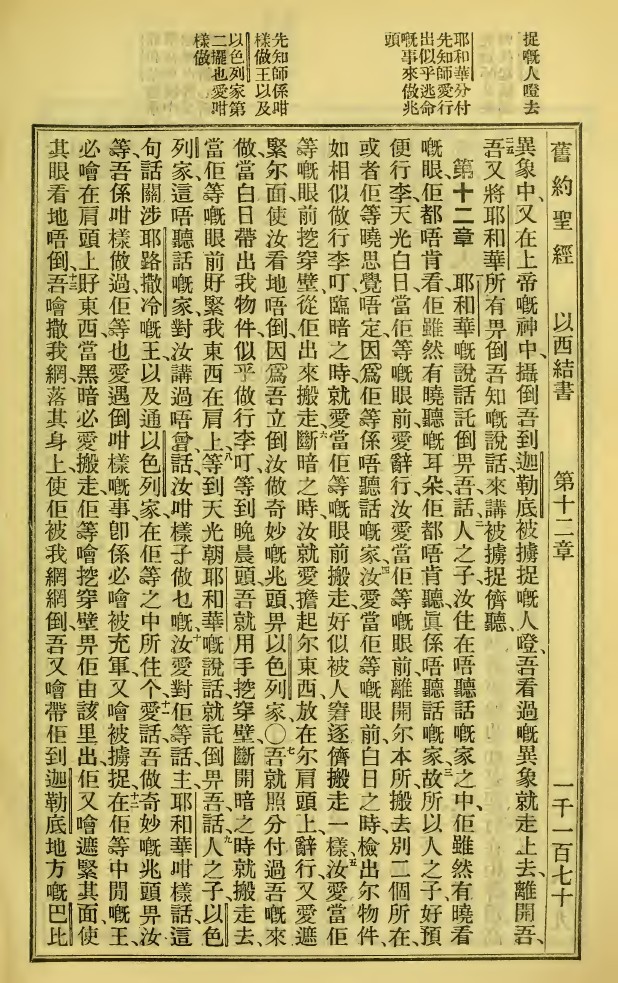 捉嘅人噔去
耶和華分付
先知師愛行
出似乎逃命
嘅事來做兆
頭
先知師係咁
樣做王以及
以色列家第
二擺也愛咁
樣做
舊約聖經 以西結書 第十二章 一千一百七十九
異象中、又在上帝嘅神中、攝倒吾到迦勒底被擄捉嘅人噔、吾看過嘅異象就走上去、離開吾、
二五吾又將耶和華所有畀倒吾知嘅說話、來講被擄捉儕聽、
第十二章 耶和華嘅說話託倒畀吾、話、二人之子、汝住在唔聽話嘅家之中、佢雖然有曉看
嘅眼、佢都唔肯看、佢雖然有曉聽嘅耳朵、佢都唔肯聽、眞係唔聽話嘅家、三故所以人之子、好預
便行李、天光白日、當佢等嘅眼前、愛辭行、汝愛當佢等嘅眼前、離開尔本所、搬去別二個所在、
或者佢等曉思覺唔定、因爲佢等係唔聽話嘅家、四汝愛當佢等嘅眼前、白日之時、檢出尔物件、
如相似做行李叮、臨暗之時就愛當佢等嘅眼前搬走、好似被人窘逐儕搬走一樣、五汝愛當佢
等嘅眼前挖穿壁、從佢出來搬走、六斷暗之時、汝就愛擔起尔東西、放在尔肩頭上、辭行、又愛遮
緊尔面、使汝看地唔倒、因爲吾立倒汝做奇妙嘅兆頭、畀以色列家、〇七吾就照分付過吾嘅來
做、當白日帶出我物件、似乎做行李叮、等到晚晨頭、吾就用手挖穿壁、斷開暗之時、就搬走去、
當佢等嘅眼前、好緊我東西在肩上、八等到天光朝、耶和華嘅說話、就託倒畀吾、話、九人之子、以色
列家、這唔聽話嘅家、對汝講過唔曾、話、汝咁樣子做乜嘅、十汝愛對佢等話、主耶和華咁樣話、這
句話關涉耶路撒冷嘅王、以及通以色列家、在佢等之中所住个、十一愛話、吾做奇妙嘅兆頭畀汝
等、吾係咁樣做過、佢等也愛遇倒咁樣嘅事、卽係必噲被充軍、又噲被擄捉、十二在佢等中間嘅王、
必噲在肩頭上好東西、當黑暗必愛搬走、佢等噲挖穿壁、畀佢由該里出、佢又噲遮緊其面、使
其眼看地唔倒、十三吾噲撒我網落其身上、使佢被我網網倒、吾又噲帶佢到迦勒底地方嘅巴比